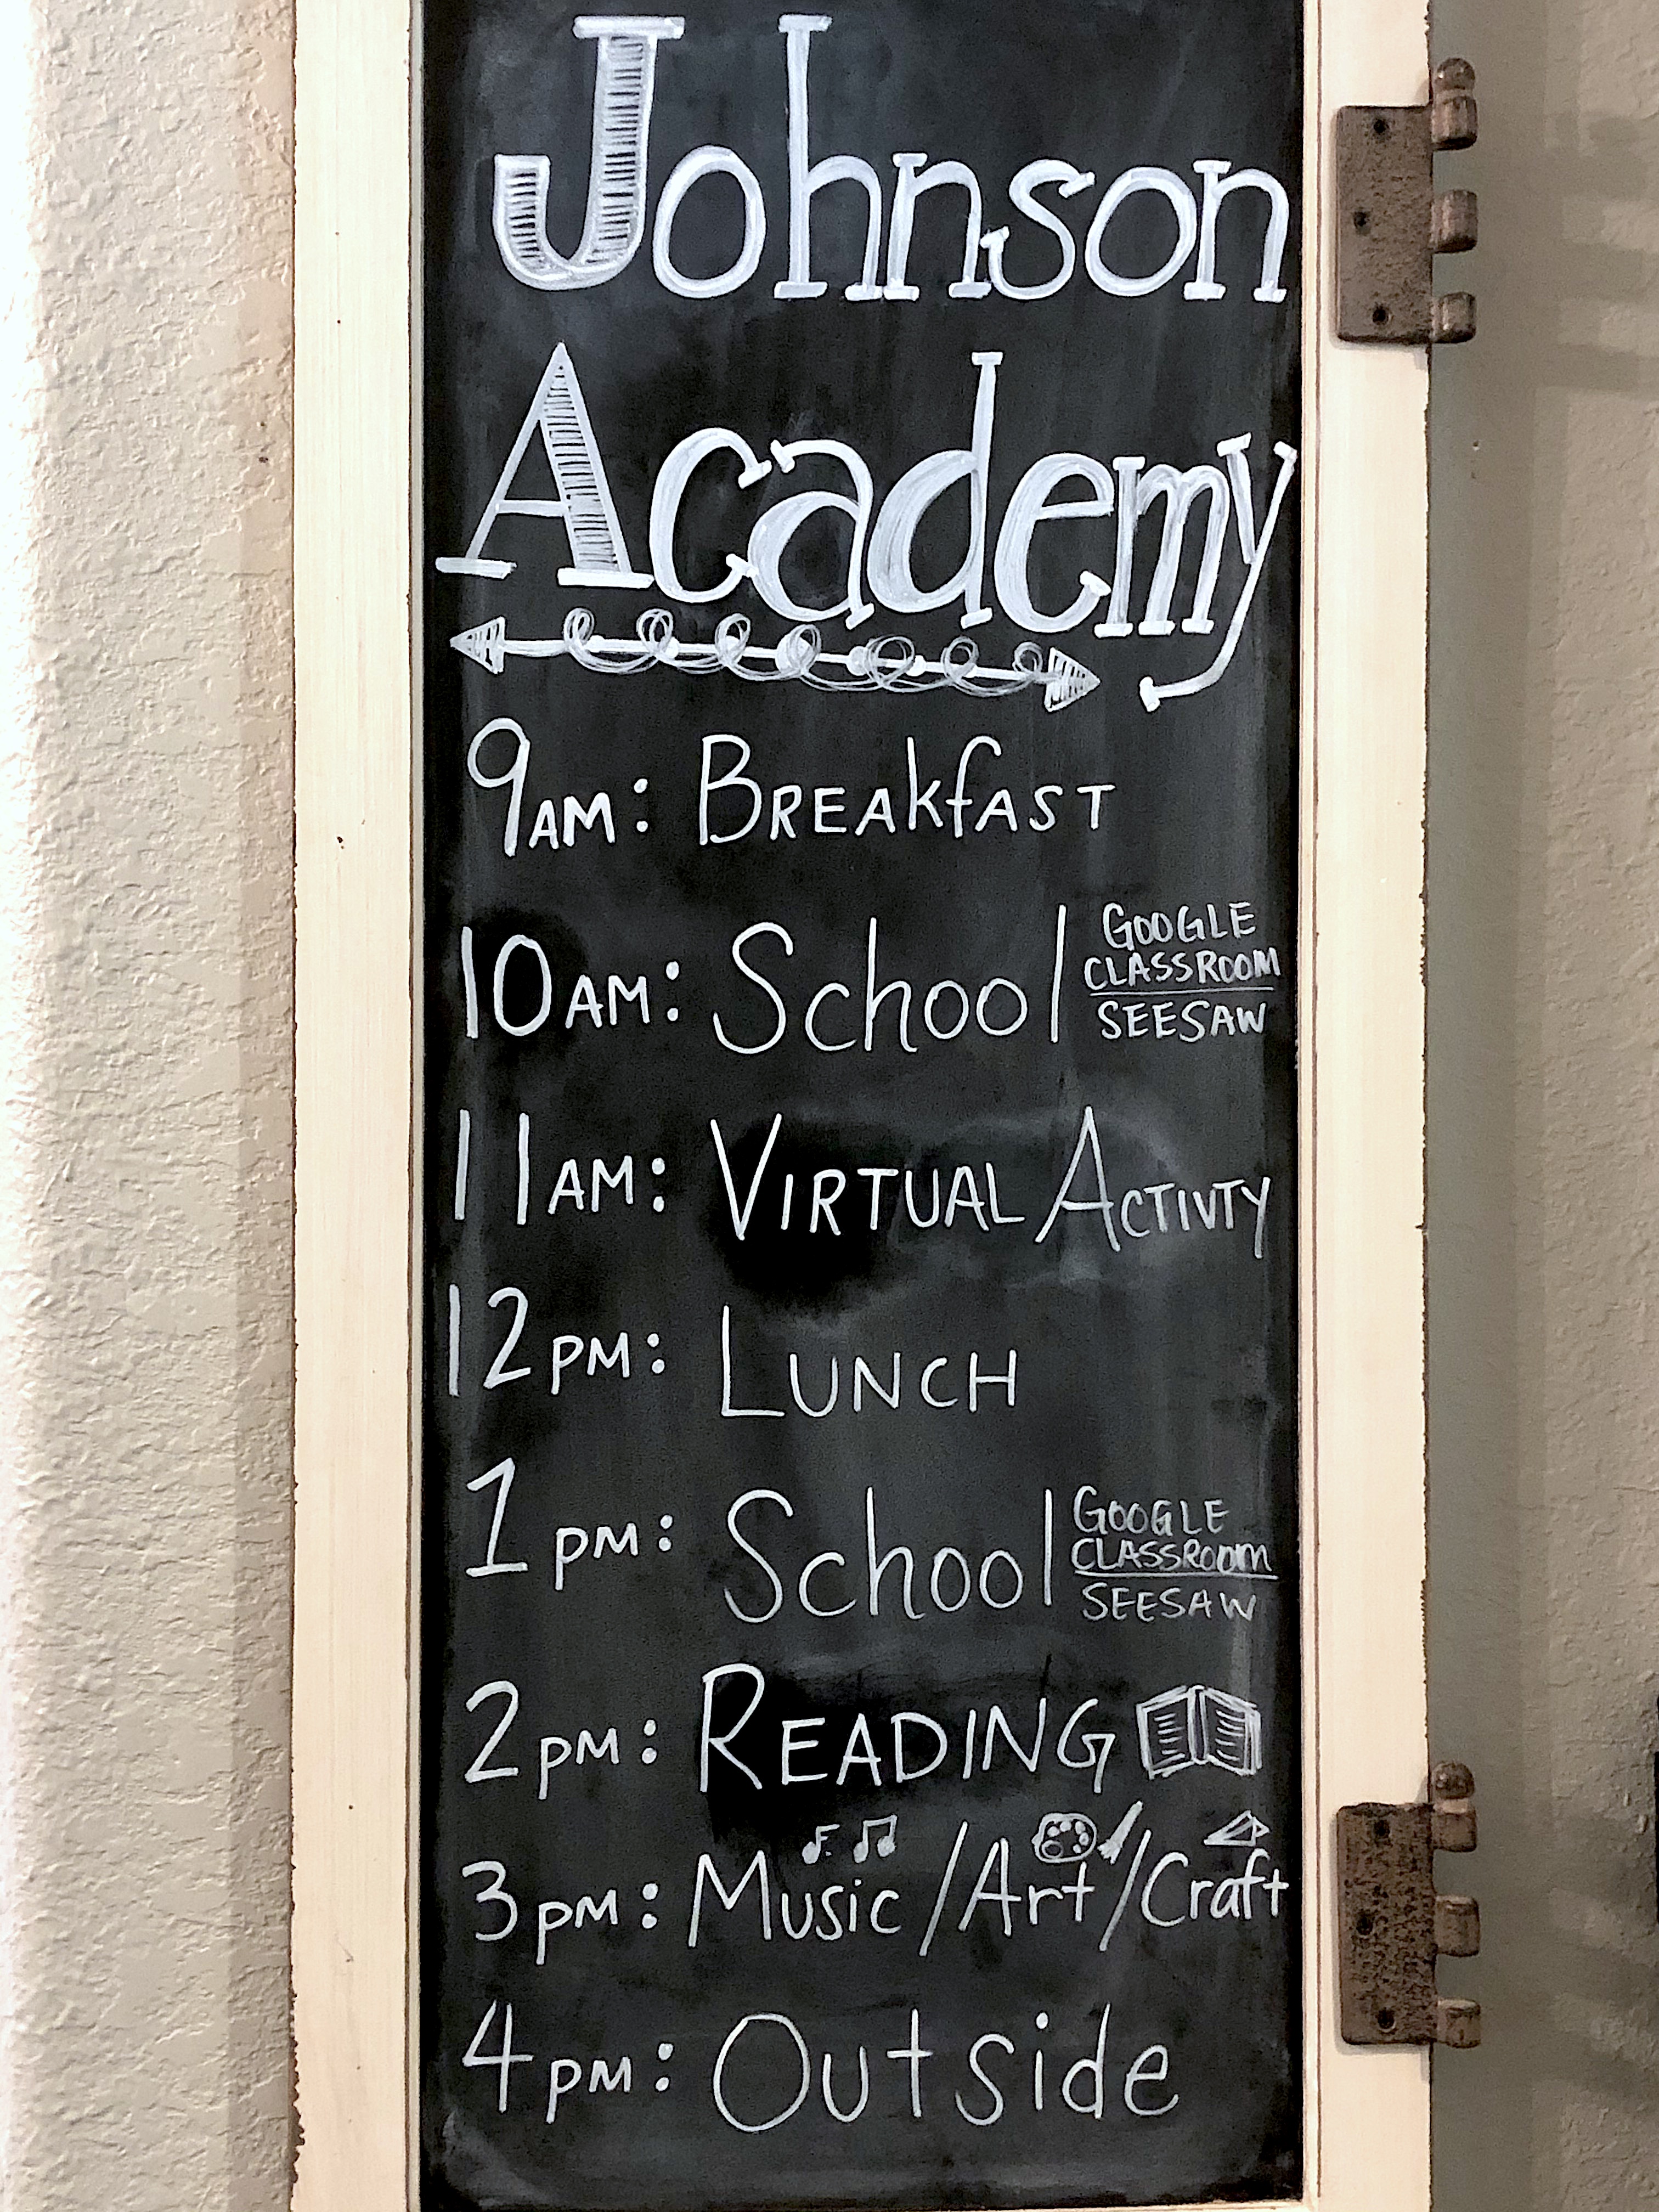 Johnson
Academy
9AM: BREAKFAST
10AM: School | GOOGLE
CLASSROOM
SEESAW
11AM: VIRTUAL ACTIVTY
12PM: LUNCH
1PM: School | GOOGLE
CLASSROOM
SEESAW
2PM: READING
3PM: Music / Art / Craft
4PM: Outside